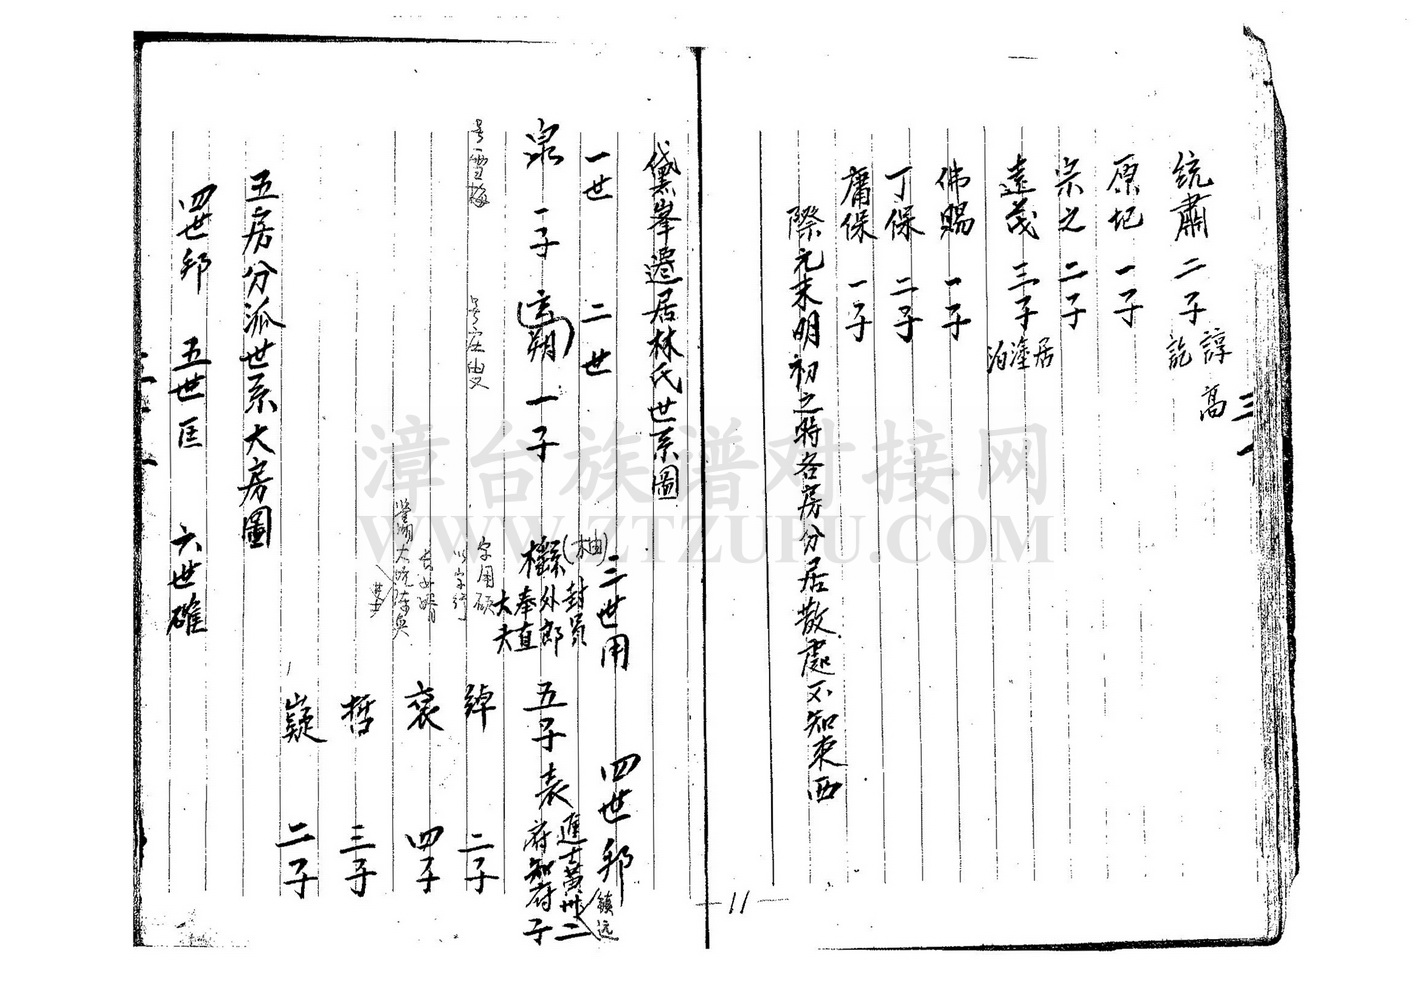 统肅 二子 諄 高
訖
原圮 一子
宗之 二子
遠茂 三子 居塗泊
佛賜 一子
丁保 二子
庸保 一子
際元末明初之時各房分居散處不知東西
黛峯遷居林氏世系圖
一世 二世 三世用 四世邦
泉 一子 (玄朔) 一子 (柚) 封員外郎奉直大夫 五子 表 進士黃州二
府知府子
鎮远
号雪梅
字用碩
以字行
綽 二子
袞 四子
哲 三子
嶷 二子
五房分派世系大房圖
四世邦 五世匡 六世確
11
漳台族谱对接网
WWW.ZTZUPU.COM